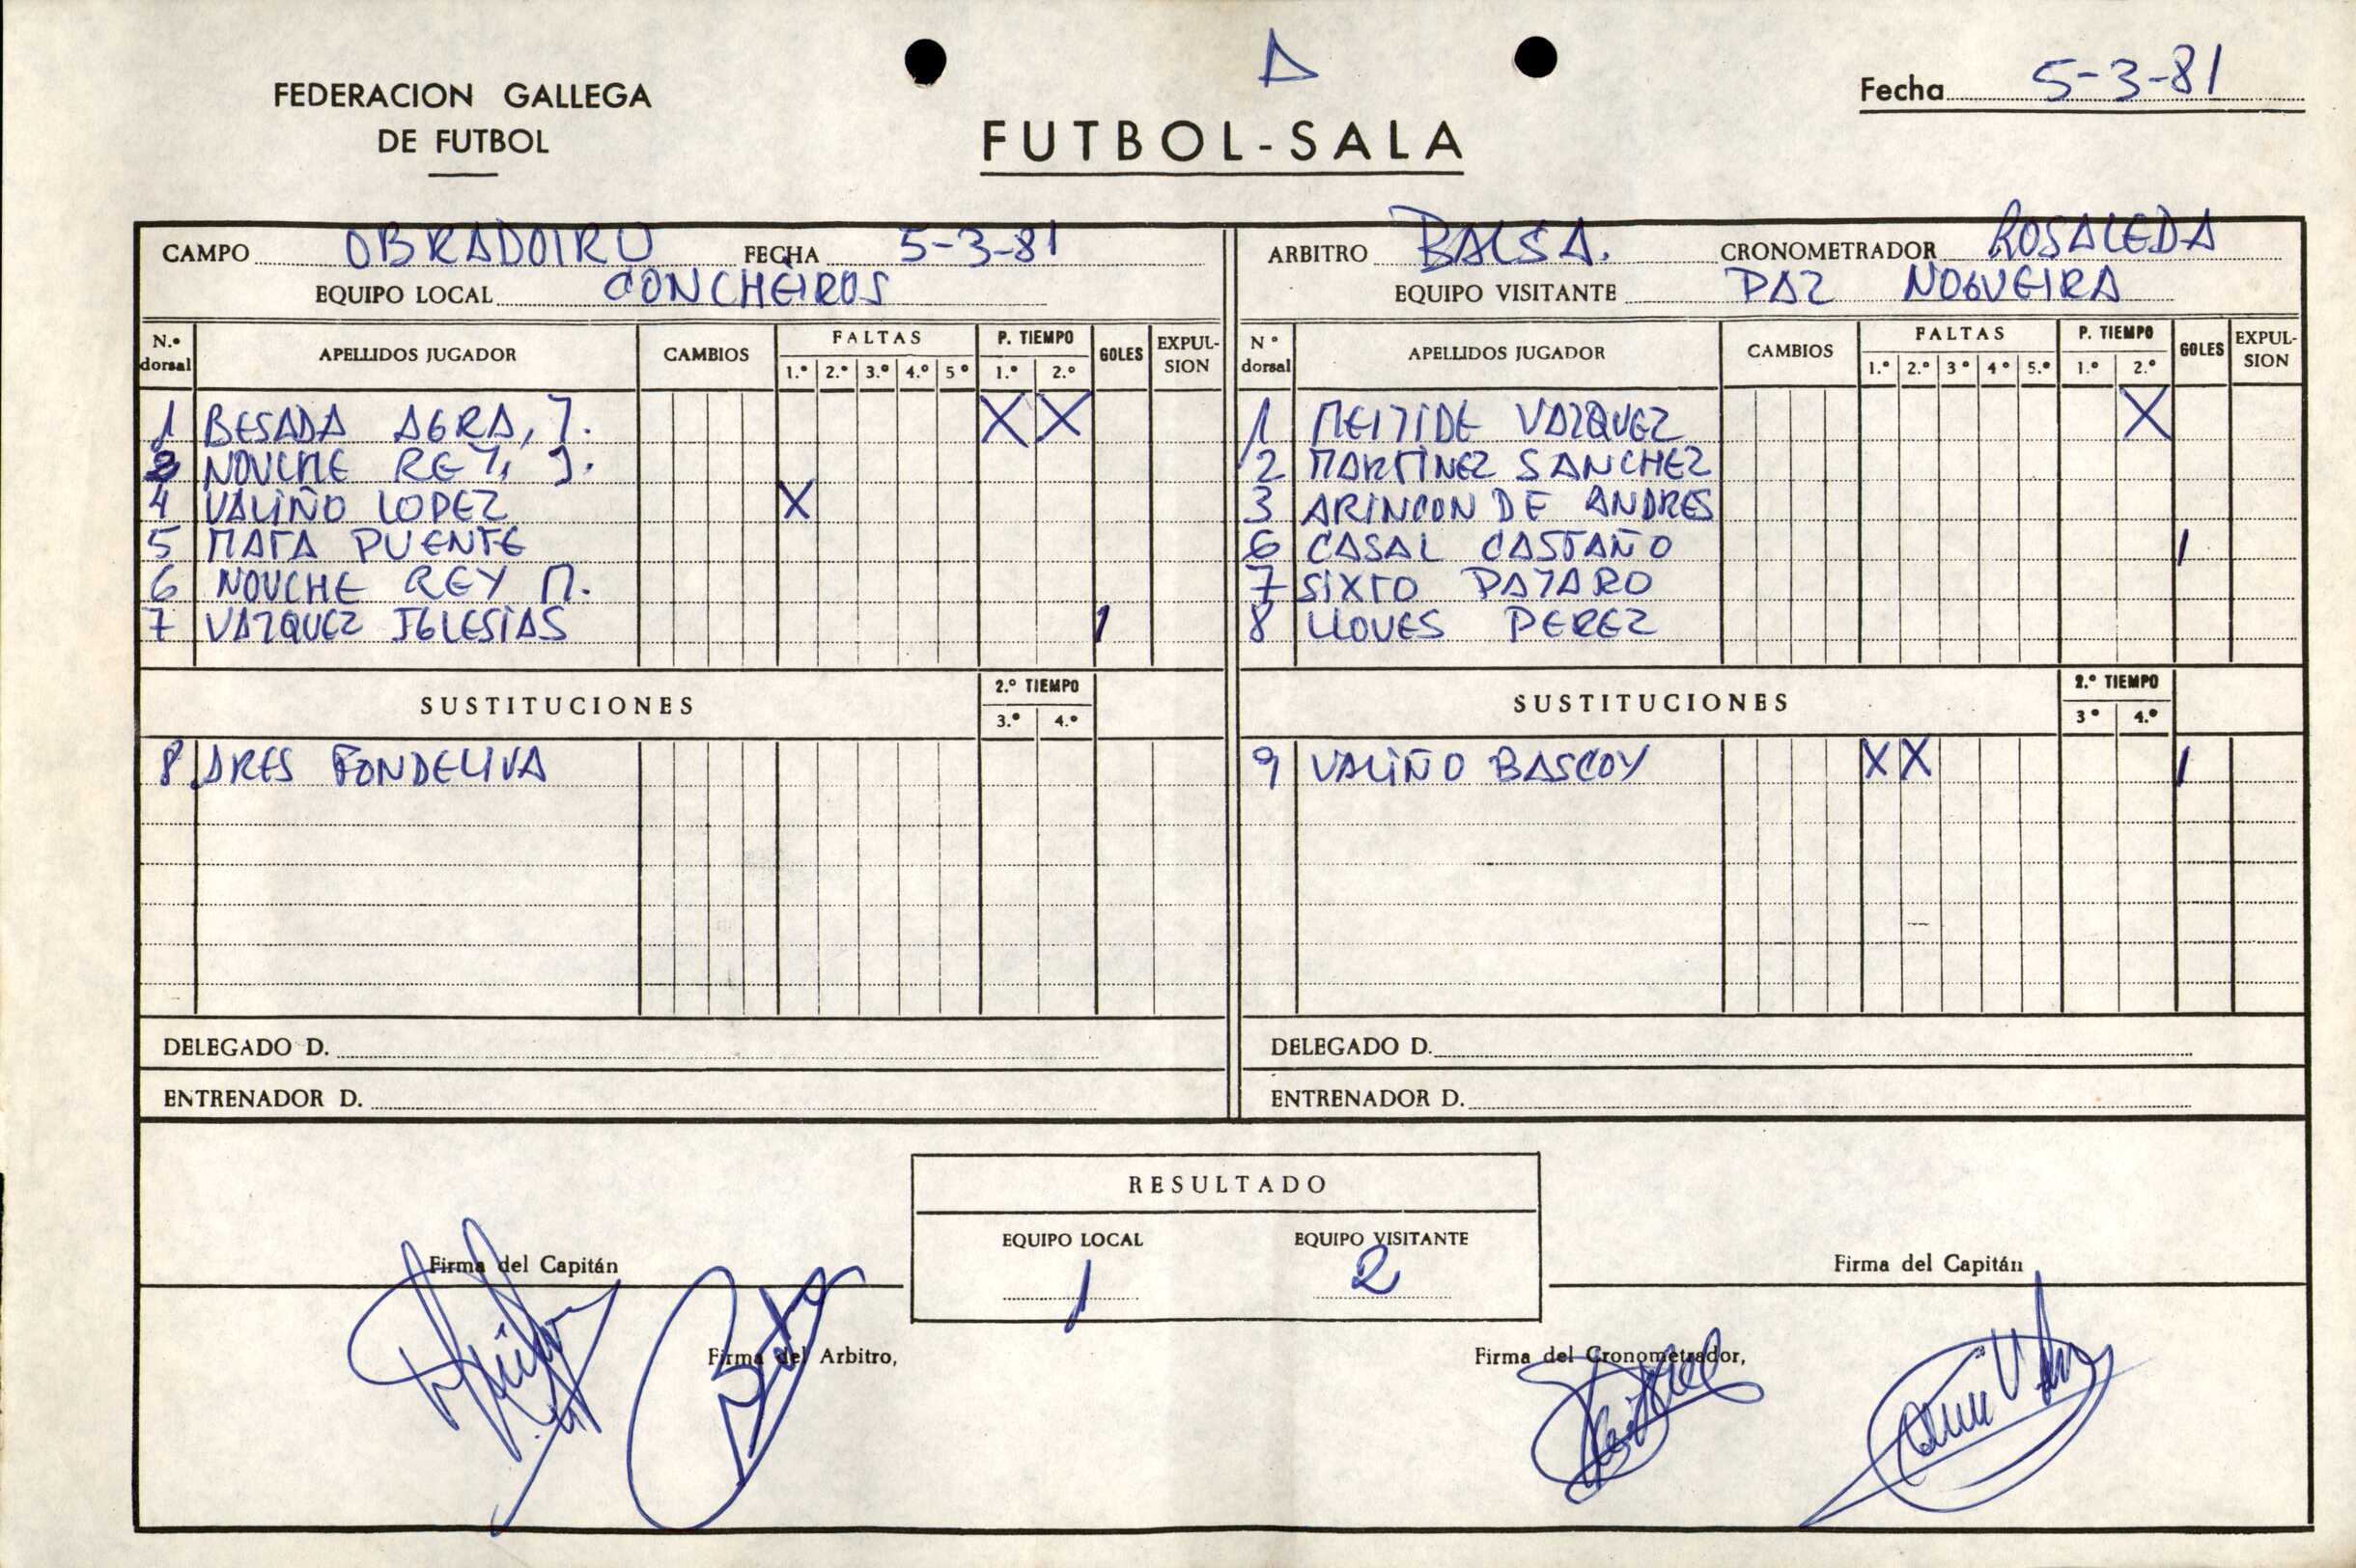 FEDERACION GALLEGA
DE FUTBOL
FUTBOL-SALA
Fecha 5-3-81
CAMPO OBRADOIRO FECHA 5-3-81
EQUIPO LOCAL CONCHEIROS
ARBITRO BALSA. CRONOMETRADOR ROSALEDA
EQUIPO VISITANTE PAZ NOGUEIRA
N.º dorsal APELLIDOS JUGADOR CAMBIOS FALTAS 1.º 2.º 3.º 4.º 5º P. TIEMPO 1.º 2.º GOLES EXPUL-SION
1 BESADA AGRA, J. X X
3 NOUCHE REY, J.
4 VALIÑO LOPEZ X
5 MATA PUENTE
6 NOUCHE REY M.
7 VAZQUEZ IGLESIAS 1
SUSTITUCIONES 2.º TIEMPO 3.º 4.º
8 ARES FONDELIVA
DELEGADO D.
ENTRENADOR D.
Nº dorsal APELLIDOS JUGADOR CAMBIOS FALTAS 1.º 2.º 3º 4º 5.º P. TIEMPO 1.º 2.º GOLES EXPUL-SION
1 MEIJIDE VAZQUEZ X
2 MARTINEZ SANCHEZ
3 ARINCON DE ANDRES
6 CASAL CASTAÑO 1
7 SIXTO PAJARO
8 LLOVES PEREZ
SUSTITUCIONES 2.º TIEMPO 3º 4.º
9 VALIÑO BASCOY X X 1
DELEGADO D.
ENTRENADOR D.
RESULTADO
EQUIPO LOCAL EQUIPO VISITANTE
1 2
Firma del Capitán
Firma del Capitán
Firma del Arbitro,
Firma del Cronometrador,